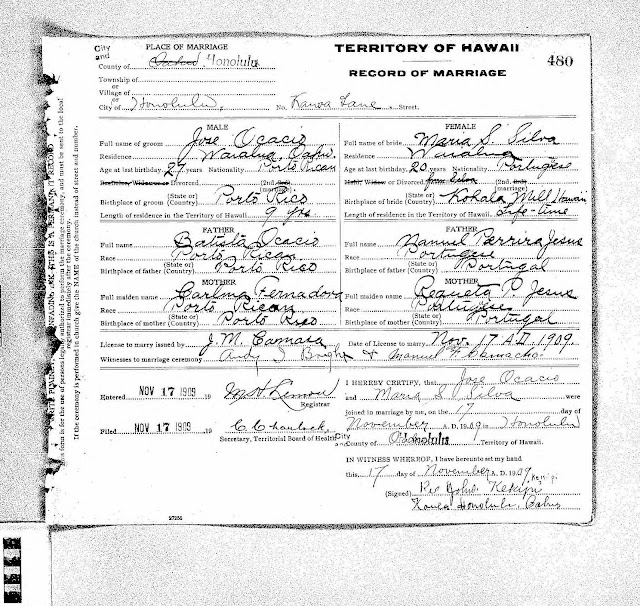 City and
PLACE OF MARRIAGE
TERRITORY OF HAWAII
480
County of Honolulu
RECORD OF MARRIAGE
Township of
or
Village of
or
City of Honolulu, No. Kanoa Lane Street.
MALE
Full name of groom Jose Ocacio
Residence Waialua, Oahu.
Age at last birthday 27 years Nationality Porto Rican
Bachelor, Widower or Divorced (2nd, 3rd) (marriage)
Birthplace of groom (State or) (Country) Porto Rico
Length of residence in the Territory of Hawaii 9 yrs
FATHER
Full name Batista Ocacio
Race Porto Rican
Birthplace of father (State or) (Country) Porto Rico
MOTHER
Full maiden name Carlina
Race Porto Rican
Birthplace of mother (State or) (Country) Porto Rico
FEMALE
Full name of bride Maria S. Silva
Residence Waialua
Age at last birthday 20 years Nationality Portugese
Maid, Widow or Divorced from Silva (2nd, 3rd) (marriage)
Birthplace of bride (State or) (Country) Kohala Mill Hawaii
Length of residence in the Territory of Hawaii Life-time
FATHER
Full name Manuel Perrira Jesus
Race Portugese
Birthplace of father (State or) (Country) Portugal
MOTHER
Full maiden name P. Jesus
Race Portugese
Birthplace of mother (State or) (Country) Portugal
License to marry issued by J. M. Camara
Date of License to marry Nov. 17 A.D. 1909.
Witnesses to marriage ceremony Andy & Manuel F. Camacho
Entered NOV 17 1909 19
Registrar
Filed NOV 17 1909 19 C. Charlock,
Secretary, Territorial Board of Health
I HEREBY CERTIFY, that Jose Ocacio
and Maria S. Silva were
joined in marriage by me, on the 17 day of
November A. D. 1909 in Honolulu
City and County of Honolulu, Territory of Hawaii.
IN WITNESS WHEREOF, I have hereunto set my hand
this 17 day of November A. D. 1909
(Signed) Rev John Kekipi
Honolulu, Oahu
27250
form is for the use of persons legally authorized to perform the marriage ceremony, and must be sent to the local
registrar immediately after the ceremony.
If the ceremony is performed in church give the NAME of the church instead of street and number.